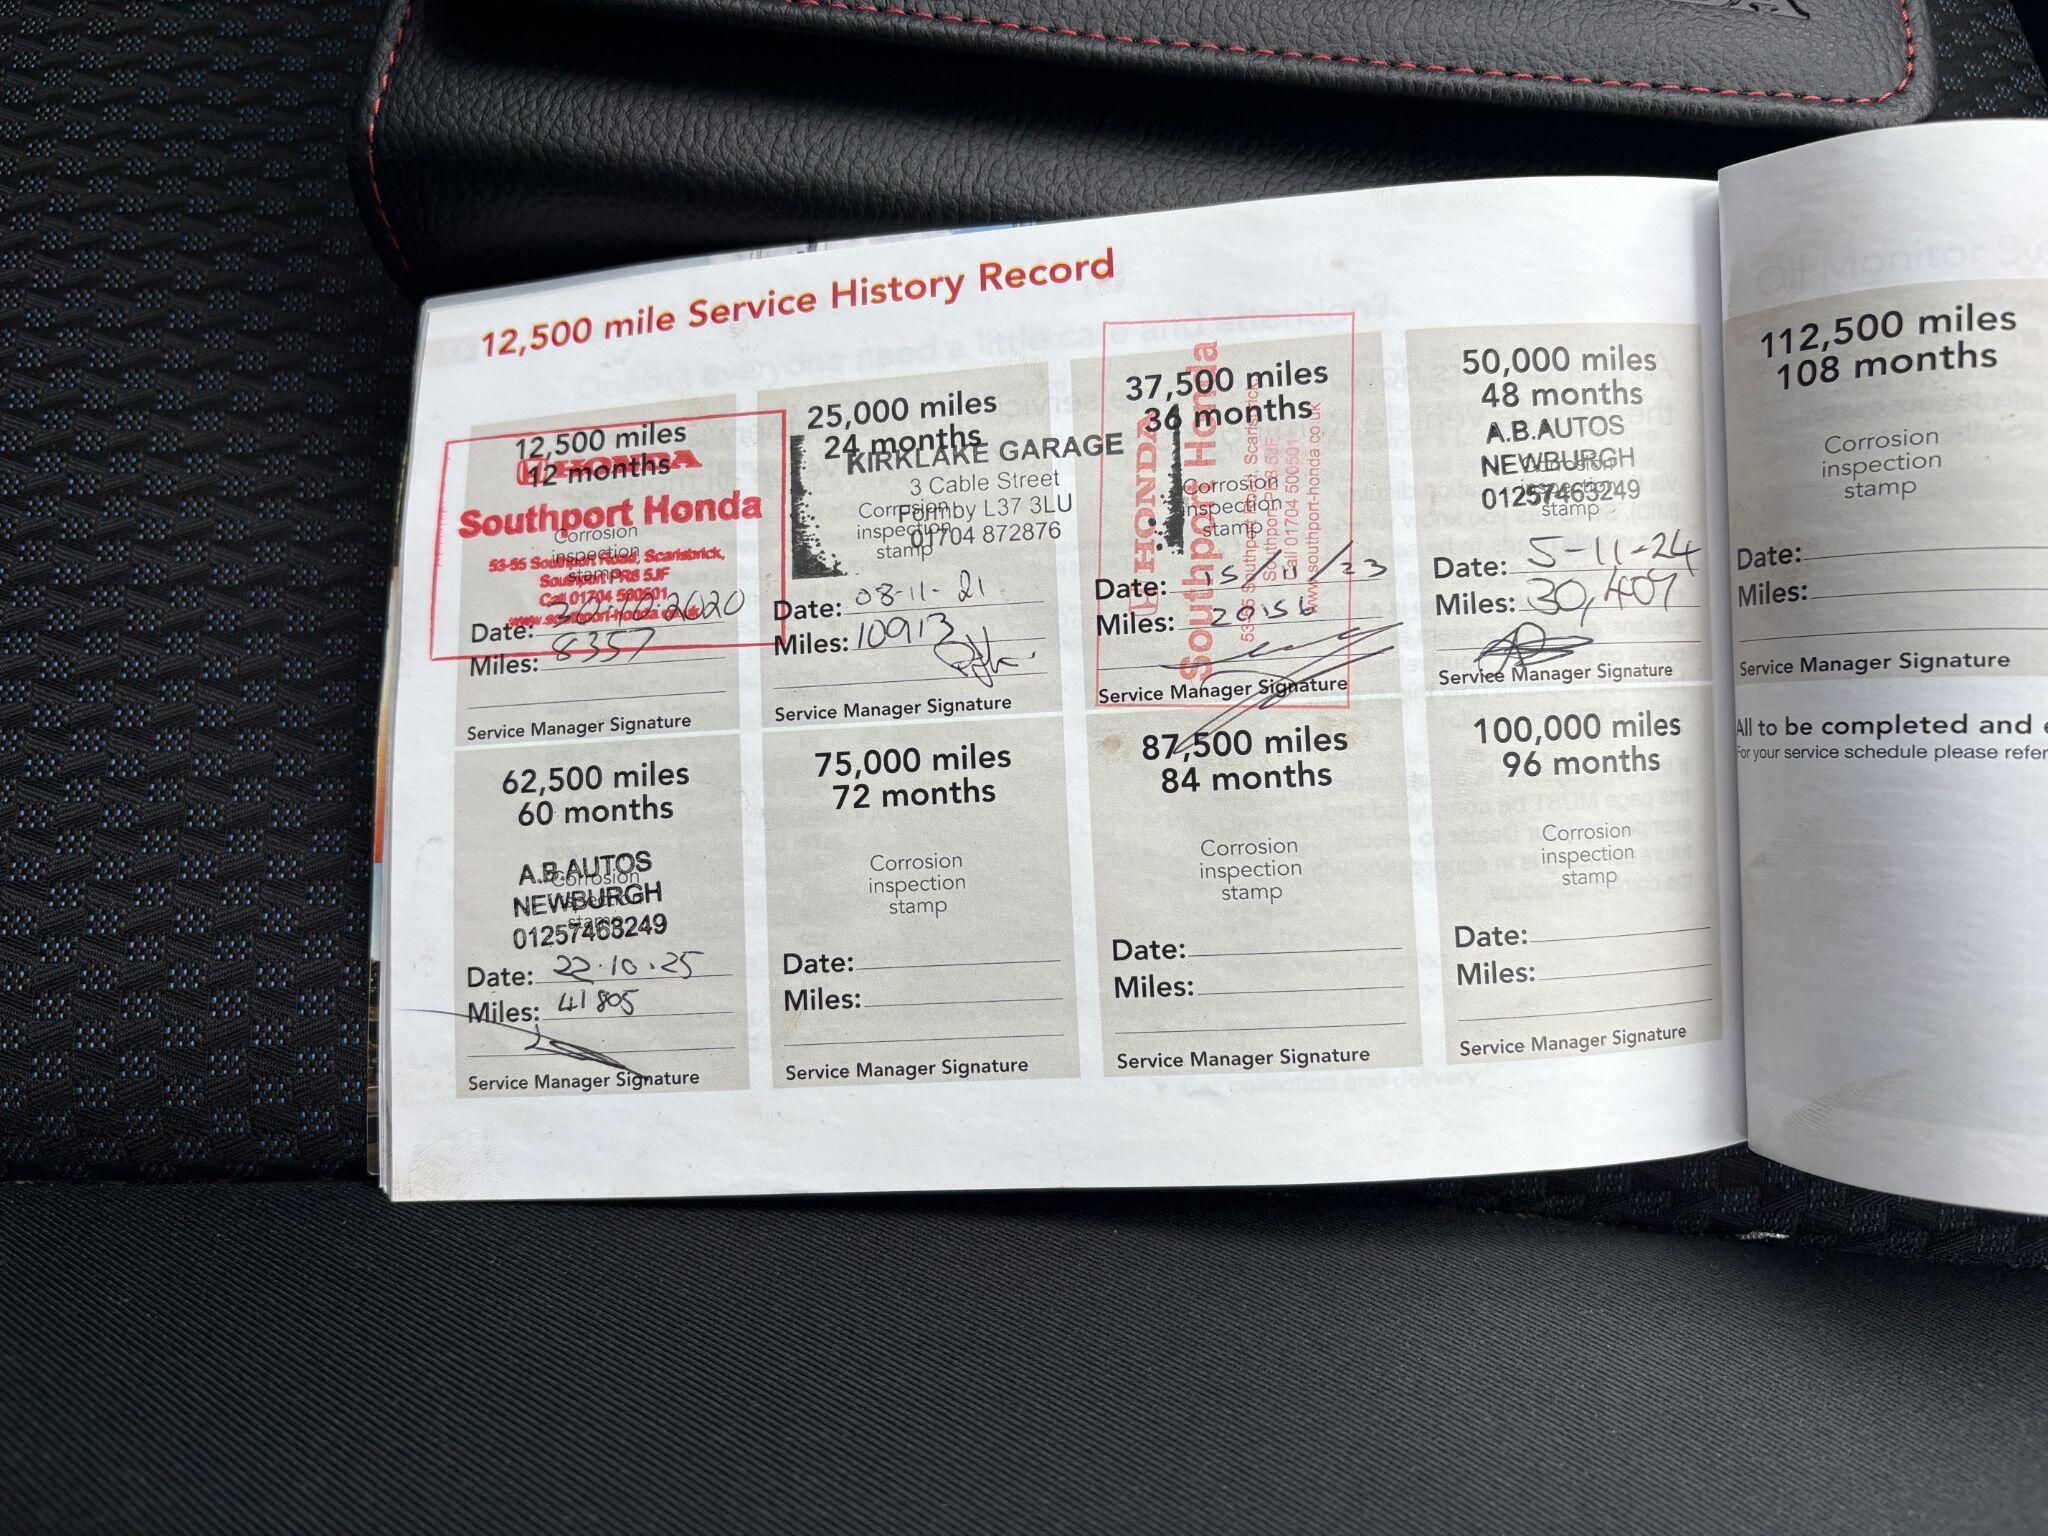 12,500 mile Service History Record
12,500 miles
12 months
HONDA
Southport Honda
Corrosion
inspection
stamp
53-55 Southport Road, Scarisbrick,
Southport PR8 5JF
Call 01704 500501
www.southport-honda.co.uk
Date: 20.10.2020
Miles: 8357
Service Manager Signature
25,000 miles
24 months
KIRKLAKE GARAGE
3 Cable Street
Formby L37 3LU
01704 872876
Corrosion
inspection
stamp
Date: 08-11-21
Miles: 10913
Service Manager Signature
37,500 miles
36 months
HONDA
Southport Honda
53-55 Southport Road, Scarisbrick,
Southport PR8 5JF
Call 01704 500501
www.southport-honda.co.uk
Corrosion
inspection
stamp
Date: 15/11/23
Miles: 20156
Service Manager Signature
50,000 miles
48 months
A.B.AUTOS
NEWBURGH
01257463249
Corrosion
inspection
stamp
Date: 5-11-24
Miles: 30,407
Service Manager Signature
62,500 miles
60 months
A.B.AUTOS
NEWBURGH
01257463249
Corrosion
inspection
stamp
Date: 22.10.25
Miles: 41805
Service Manager Signature
75,000 miles
72 months
Corrosion
inspection
stamp
Date:
Miles:
Service Manager Signature
87,500 miles
84 months
Corrosion
inspection
stamp
Date:
Miles:
Service Manager Signature
100,000 miles
96 months
Corrosion
inspection
stamp
Date:
Miles:
Service Manager Signature
112,500 miles
108 months
Corrosion
inspection
stamp
Date:
Miles:
Service Manager Signature
All to be completed and
For your service schedule please refer